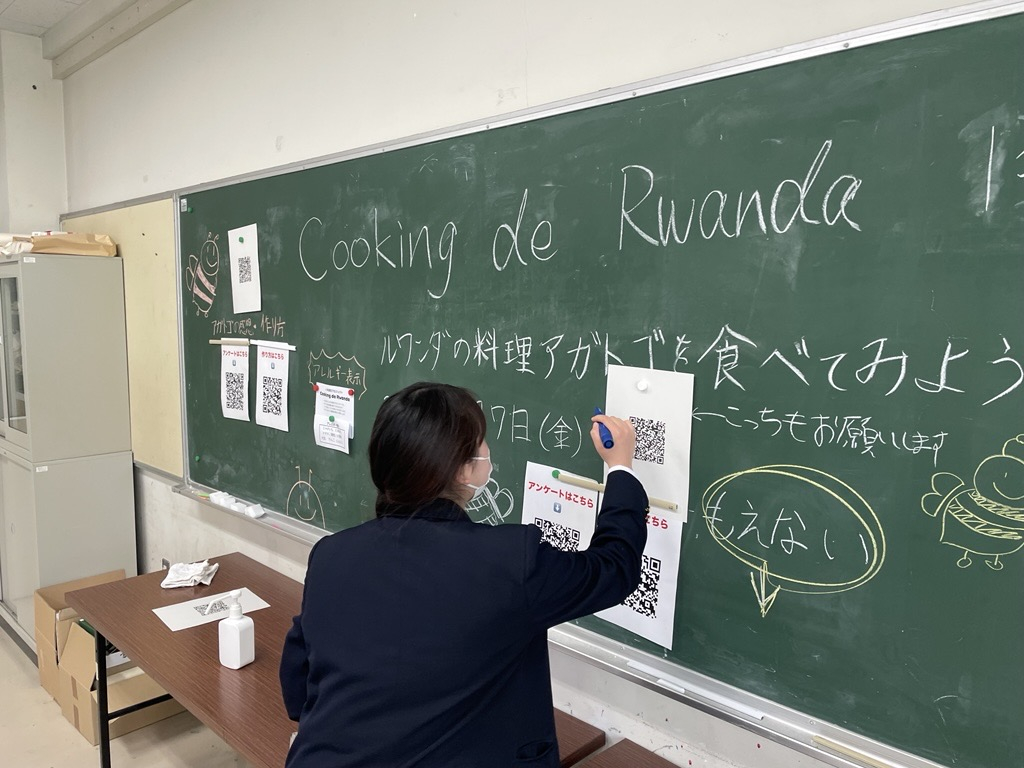 Cooking de Rwanda
ルワンダの料理アガトゴを食べてみよう
7日(金)
←こっちもお願いします
アガトゴの感想・作り方
アンケートはこちら
作り方はこちら
アレルギー表示
Cooking de Rwanda
アンケートはこちら
こちら
もえない